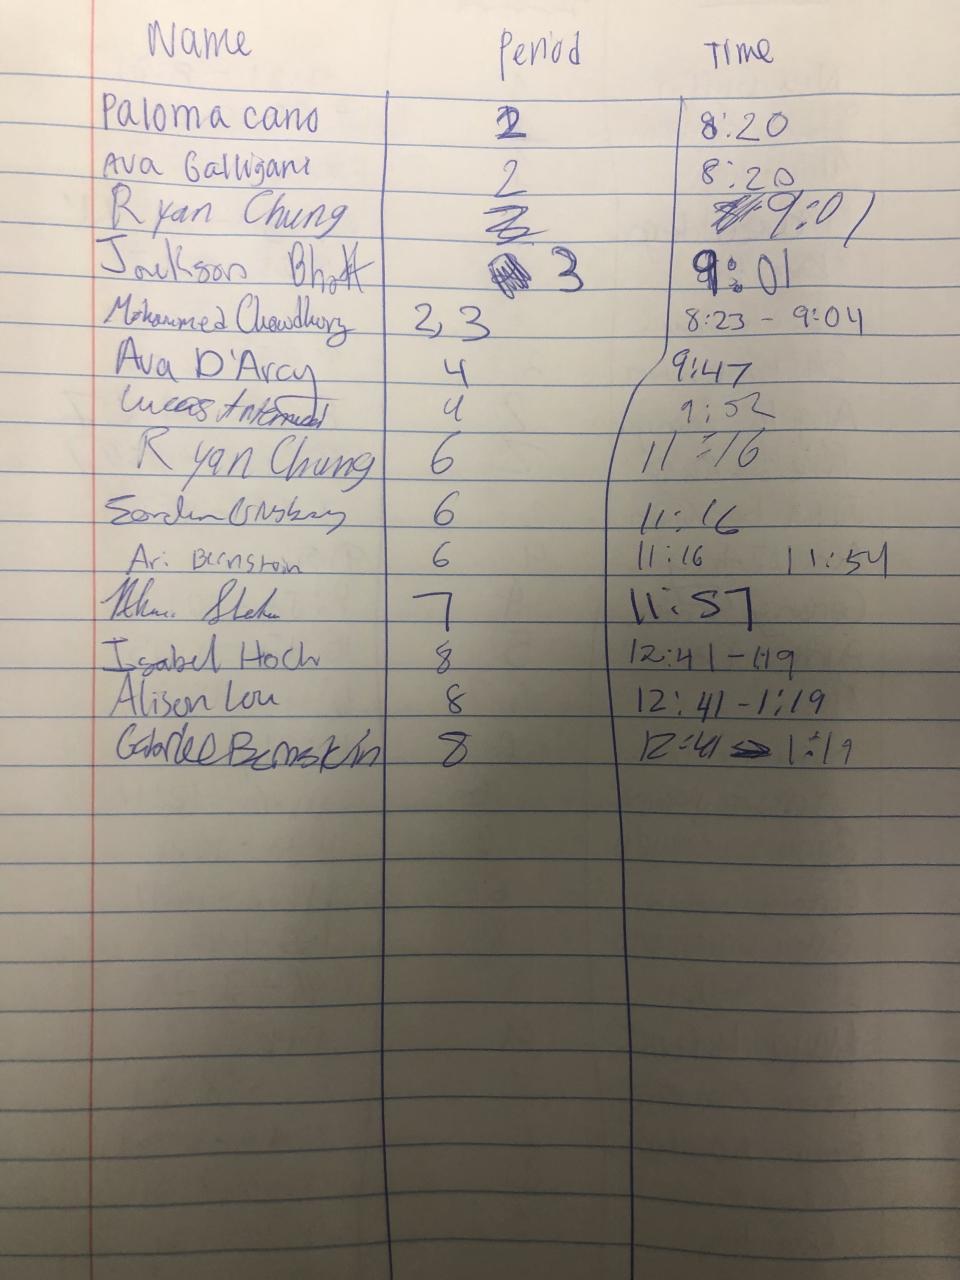 Name Period Time
Paloma cano 2 8:20
Ava Galligani 2 8:20
Ryan Chung 9:01
Jackson Bhatt 3 9:01
Mohammed Chowdhury 2, 3 8:23 - 9:04
Ava D'Arcy 4 9:47
Lucas 4 9:52
Ryan Chung 6 11:16
6 11:16
Ari Bernstein 6 11:16 11:54
7 11:57
Isabel Hoch 8 12:41 - 1:19
Alison Lou 8 12:41 - 1:19
Gabriel Bernstein 8 12:41 1:19